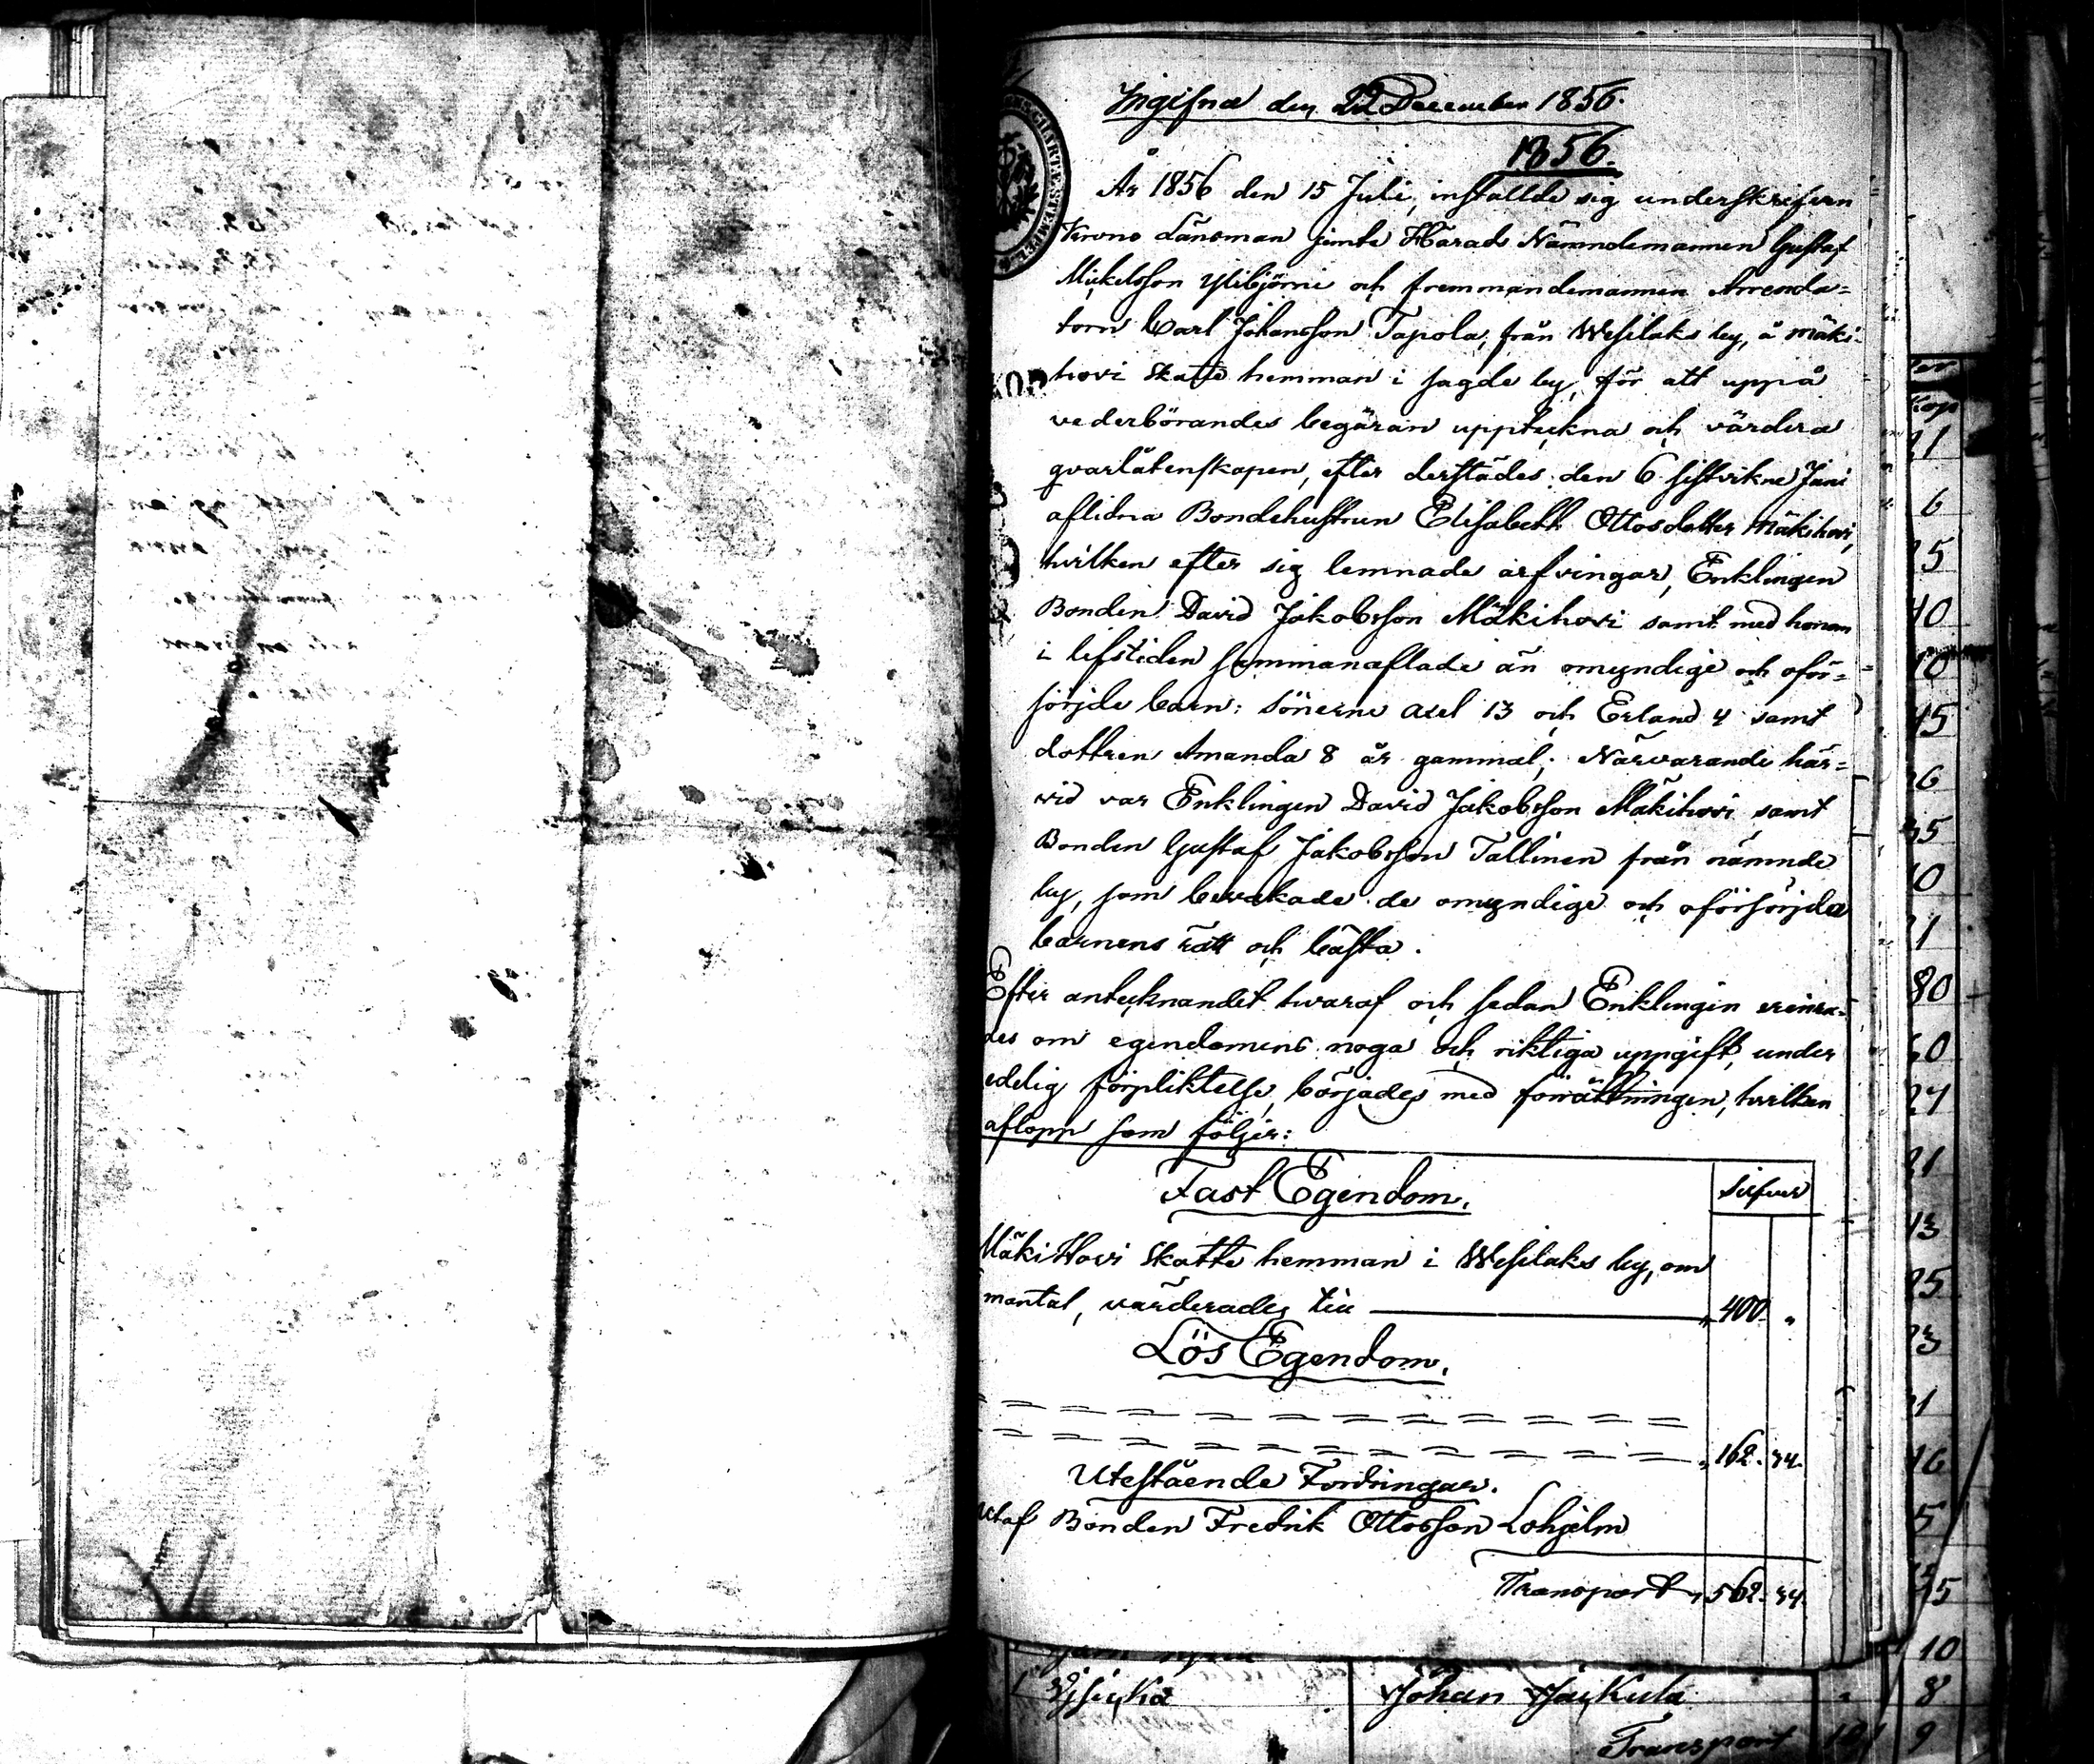 Ingifna den 22 December 1856.
1856.
År 1856 den 15 Juli, instälde sig underskrifven
Krono Länsman jemte Härads Nämndemannen Gustaf
Mickelsson Ylibjörni och fremmandemannen Arrenda=
torn Carl Johansson Tapola, från Wesilaks by, å Mäki-
hovi Skatte hemman i sagde by, för att uppå
vederbörandes begäran uppteckna och värdera
qvarlåtenskapen, efter derstädes den 6 sistvikne Juni
aflidna Bondehustrun Elisabeth Ottosdotter Mäkihovi,
hvilken efter sig lemnade arfvingar, Enklingen
Bonden David Jakobsson Mäkihovi samt med honom
i lifstiden sammanaflade än omyndige och oför=
sörjde barn: Sönerne Axel 13 och Erland 4 samt
dottren Amanda 8 år gammal; Närvarande här=
vid var Enklingen David Jakobsson Mäkihovi samt
Bonden Gustaf Jakobsson Tallinen från nämnde
by, som bevakade de omyndige och oförsörjda
barnens rätt och bästa.
Efter antecknandet hvaraf och sedan Enklingen erinra=
des om egendomens noga och riktiga uppgift, under
edelig förpliktelse, börjades med förrättningen, hvilken
aflopp som följer:
Fast Egendom.
Silfver
Mäki Hovi Skatte hemman i Wesilaks by, om
mantal, värderades till 400. "
Lös Egendom.
" 162. 34.
Utestående Fordringar.
Utaf Bonden Fredrik Ottosson Lohjelm
Transport, 562. 34.
Johan
Transport
21
6
25
10
80
10
8
9